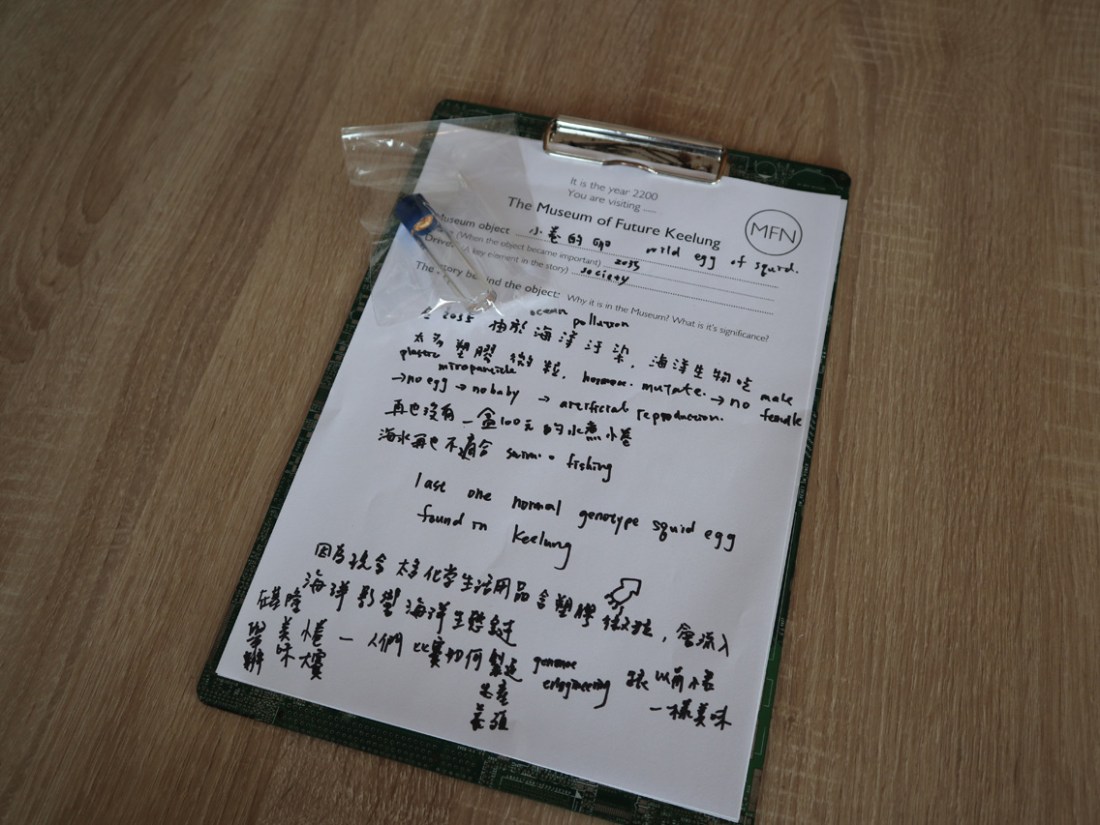 It is the year 2200
You are visiting ......
The Museum of Future Keelung
MFN
Museum object 小卷的 world egg of squid.
(When the object became important) 2035
Driver (A key element in the story) society
The story behind the object: Why it is in the Museum? What is it's significance?
ocean pollution
2035 由於海洋汙染, 海洋生物吃
太多塑膠微粒, hormone. mutate. → no male
plastic microparticle female
→ no egg → no baby → artificial reproduction.
再也沒有一盒100元的水煮小卷
海水再也不適合 swim fishing
last one normal genotype squid egg
found in Keelung
因為現今太多化學生活用品含塑膠微粒, 會流入
海洋影響海洋生態鏈
基隆舉辦美味小卷大賽 — 人們比賽如何製造 genome engineering 跟以前小卷
一樣美味
養殖